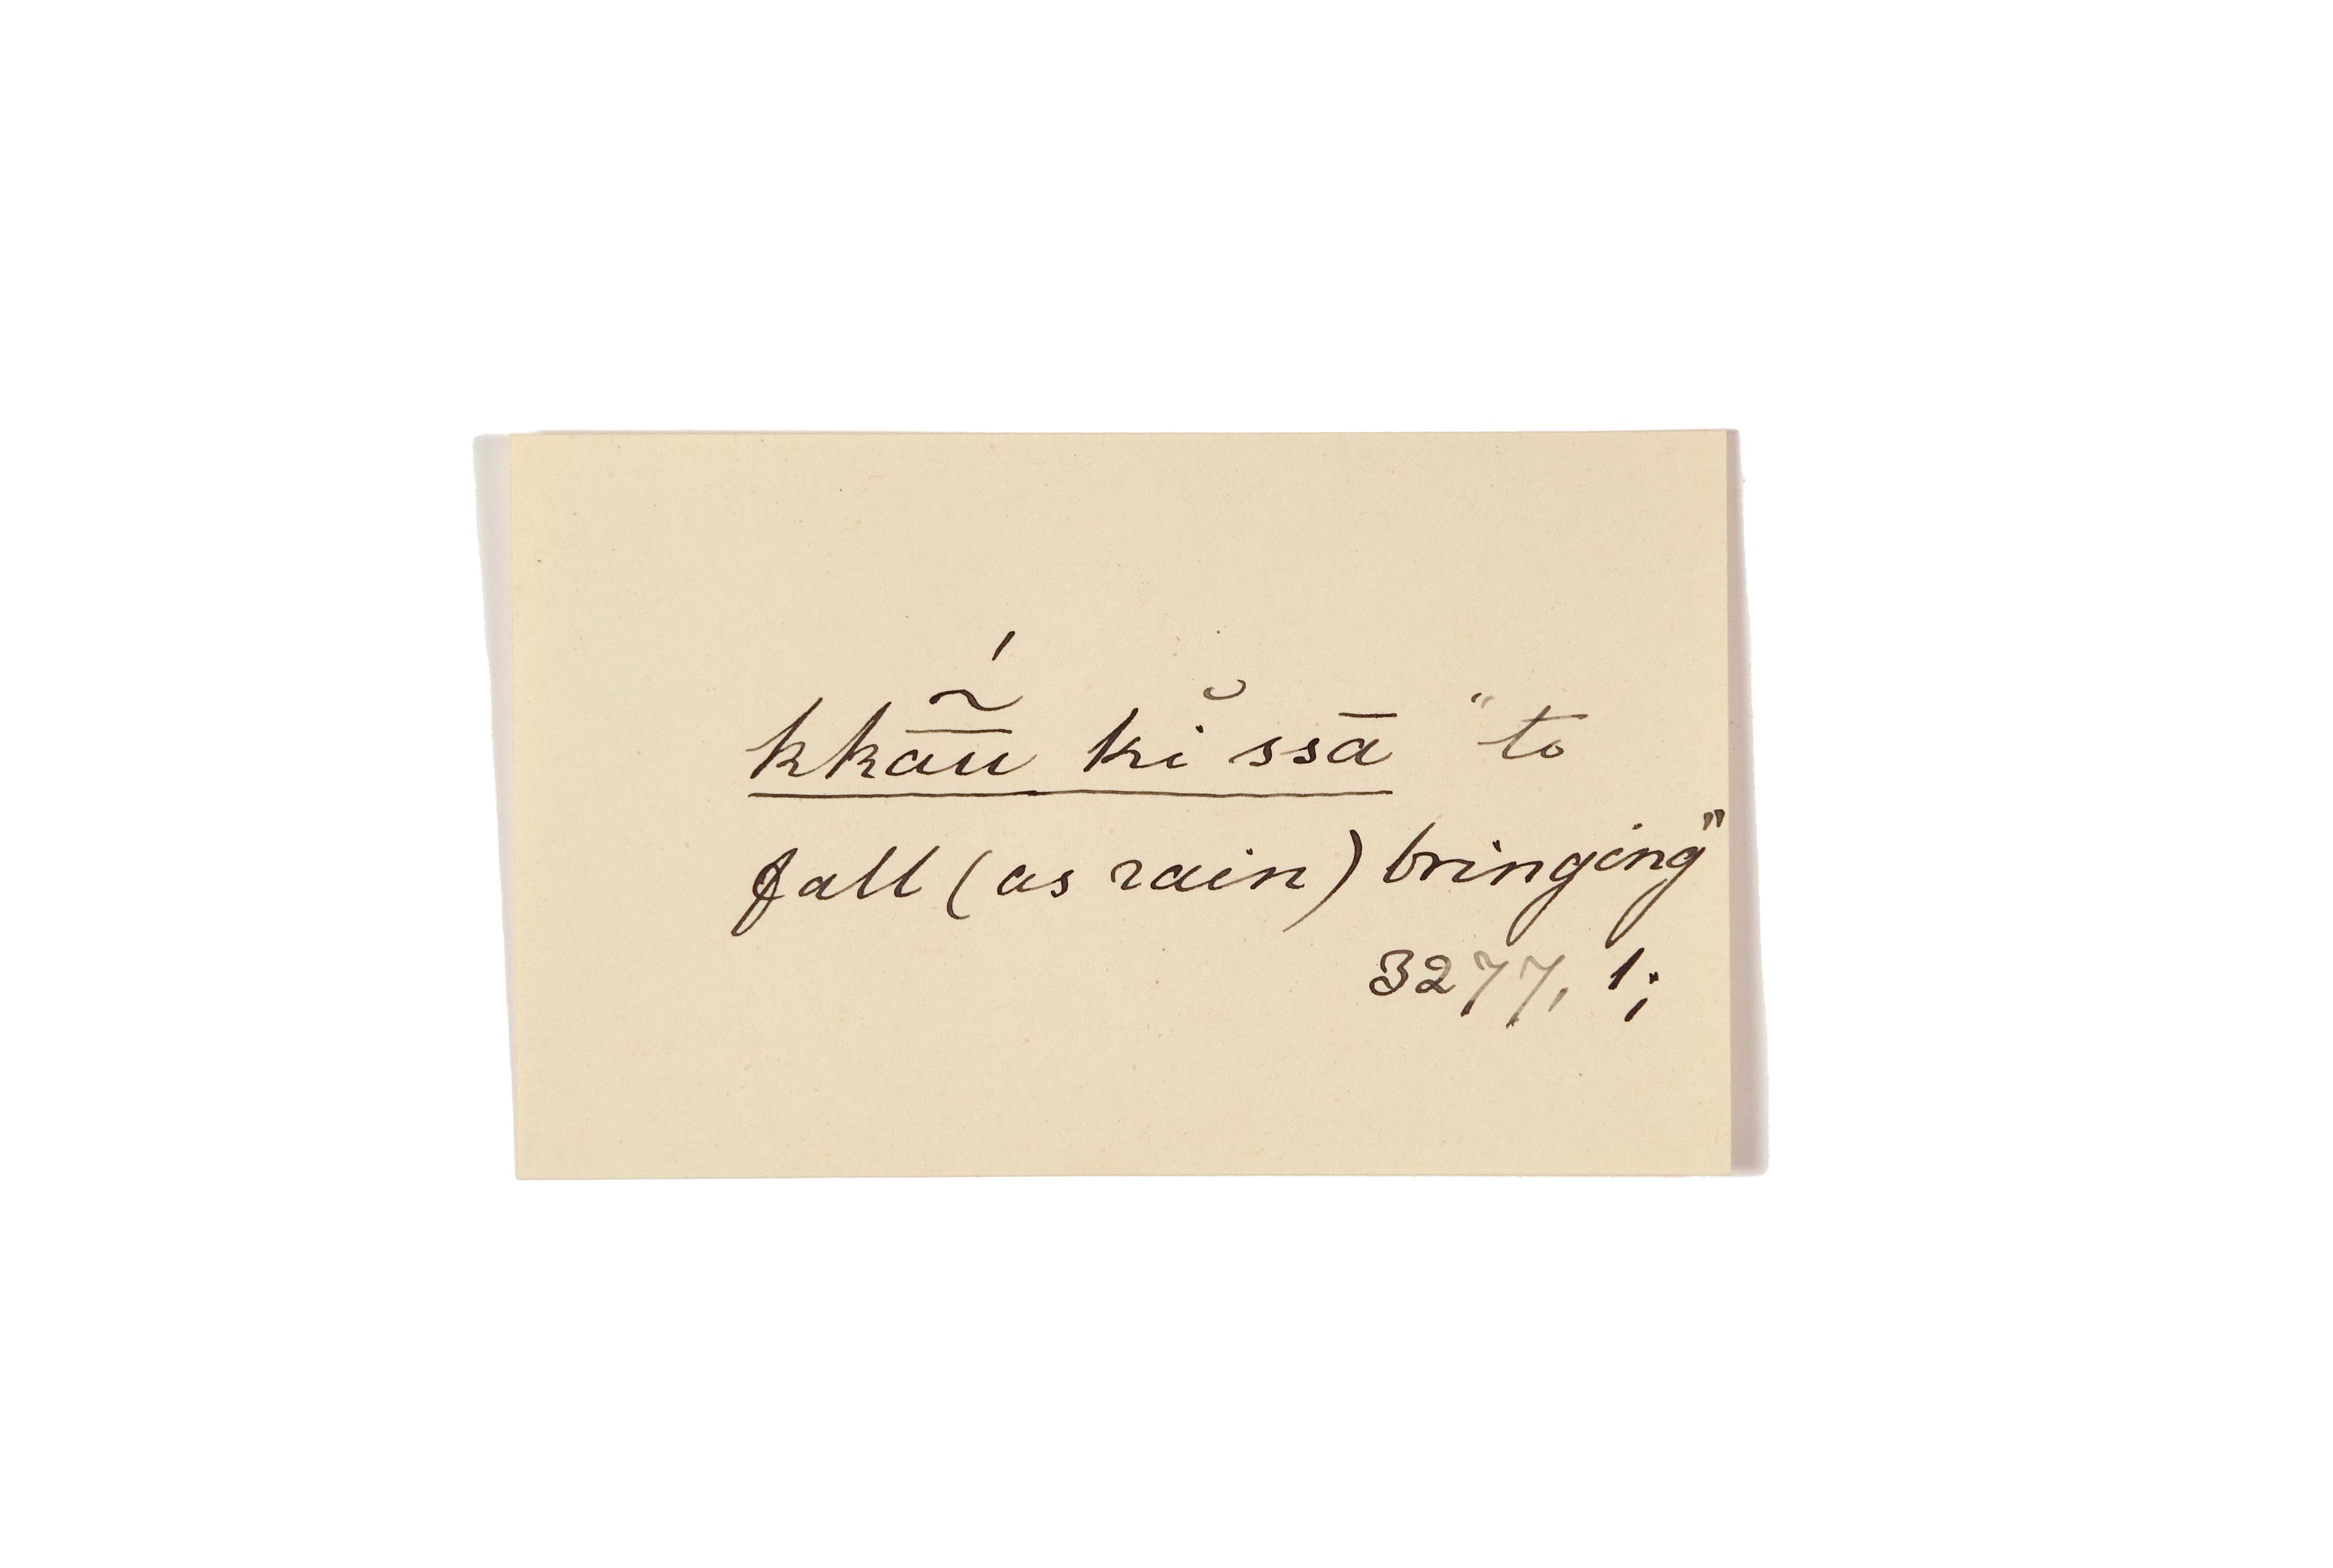 kkā̃ū́ kĭ ssā "to
fall (as rain) bringing"
3277, 1;